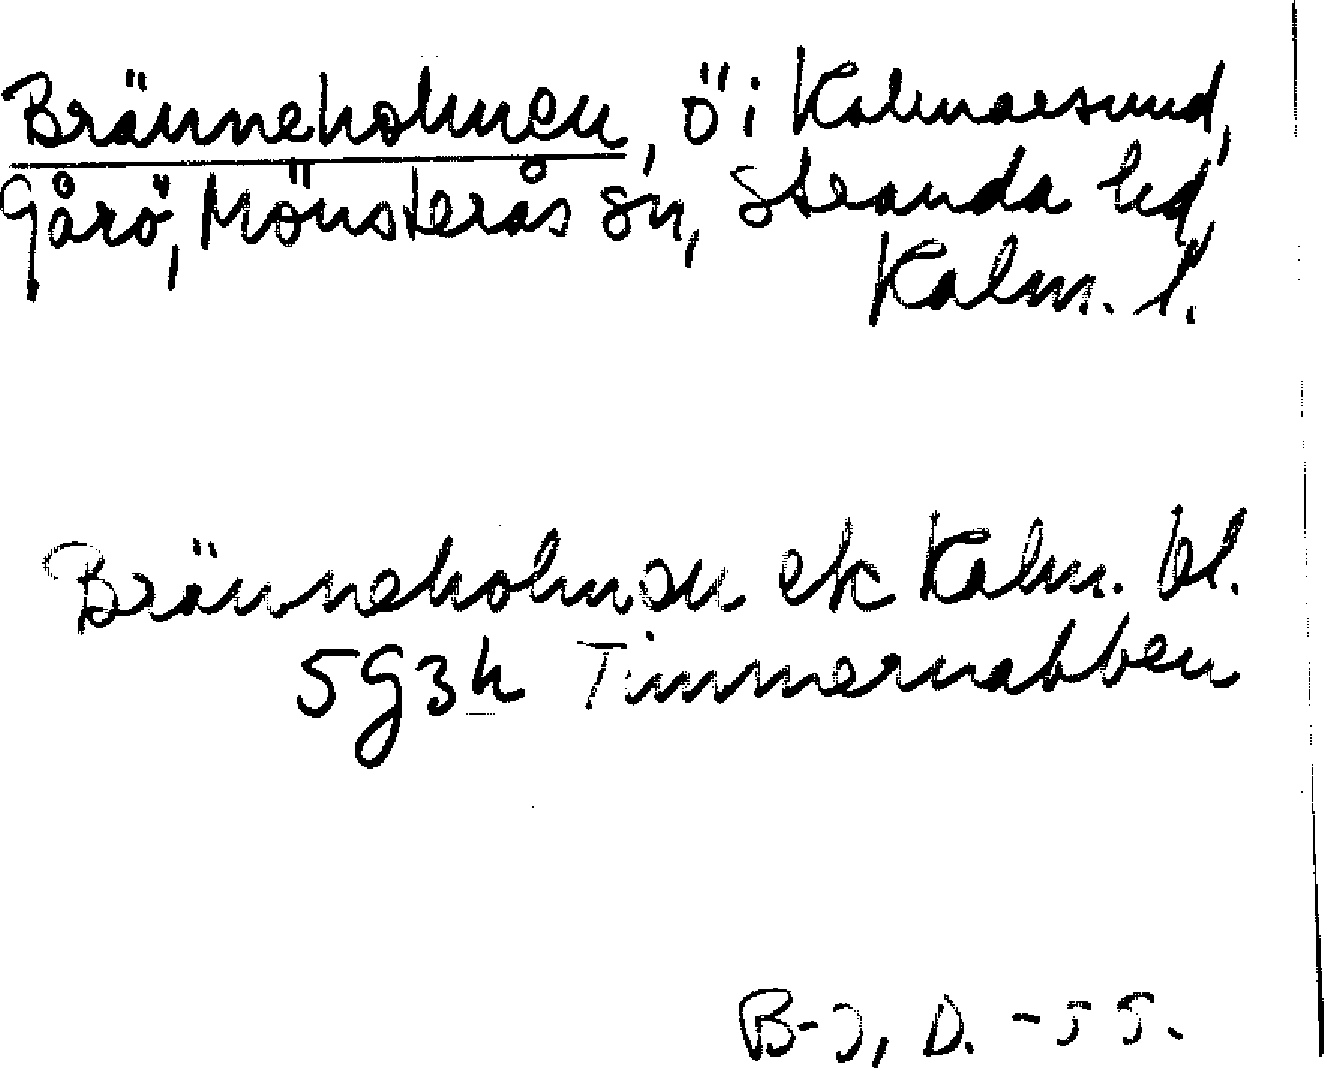 Bränneholmen, ö i Kalmarsund,
Gårö, Mönsterås sn, Stranda hd,
Kalm. l.
Bränneholmen ek Kalm. bl.
5G3h Timmernabben
B-J, D. -55.